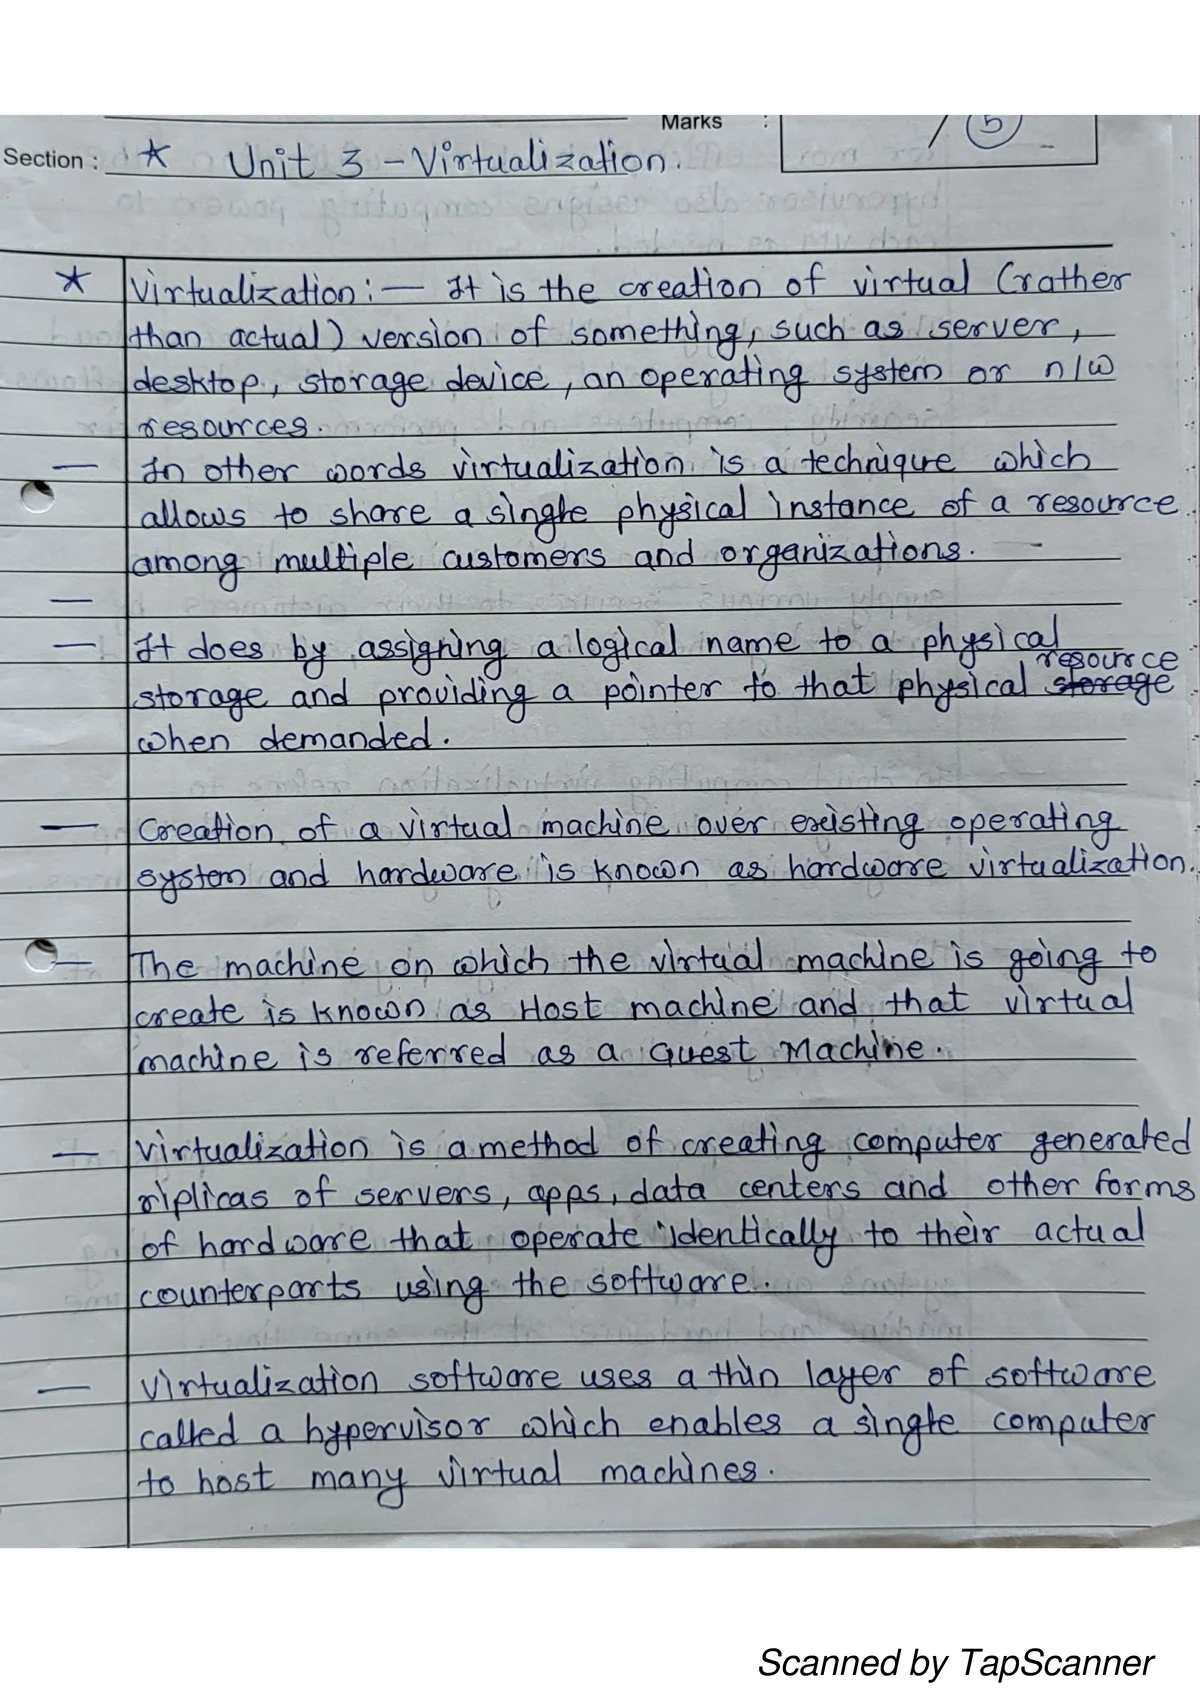 Marks :
/ 5
Section : * Unit 3 - Virtualization.
* Virtualization :— It is the creation of virtual (rather
than actual) version of something, such as server,
desktop, storage device, an operating system or n/w
resources.
— In other words virtualization is a technique which
allows to share a single physical instance of a resource
among multiple customers and organizations. -
—
— It does by assigning a logical name to a physical
storage and providing a pointer to that physical ~~storage~~ resource
when demanded.
— Creation of a virtual machine over existing operating
system and hardware is known as hardware virtualization.
— The machine on which the virtual machine is going to
create is known as Host machine and that virtual
machine is referred as a Guest Machine.
— Virtualization is a method of creating computer generated
riplicas of servers, apps, data centers and other forms
of hardware that operate identically to their actual
counterparts using the software.
— Virtualization software uses a thin layer of software
called a hypervisor which enables a single computer
to host many virtual machines.
Scanned by TapScanner